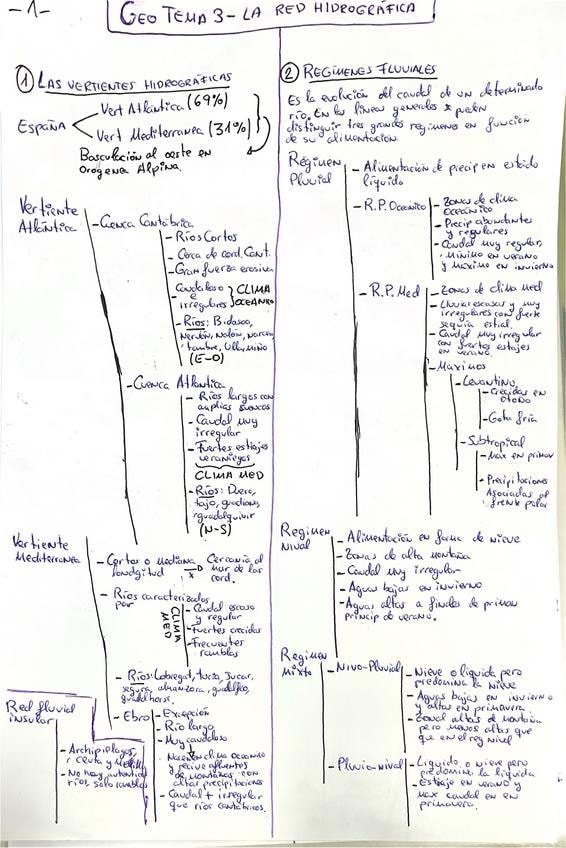 -1-
GEO TEMA 3 - LA RED HIDROGRÁFICA
① LAS VERTIENTES HIDROGRÁFICAS
España
Vert Atlántica (69%)
Vert Mediterranea (31%)
Basculación al oeste en
Orogenea Alpina.
Vertiente
Atlántica
- Cuenca Cantábrica
- Ríos Cortos
- Cerca de cord. Cant.
- Gran fuerza erosiva
- Caudaloso e
irregulares
CLIMA
OCEANICO
- Ríos: Bidasoa,
Nervión, Nalón, Narcea,
tambre, Ulla, Miño
(E-O)
- Cuenca Atlantica
- Ríos largos con
amplias cuencas
- Caudal muy
irregular
- Fuertes estiajes
veraniegos
CLIMA MED
- Ríos: Duero,
tajo, guadiana,
guadalquivir
(N-S)
Vertiente
Mediterranea
- Cortos o mediana
longitud
Cercanía al
mar de las
cord.
- Ríos caracterizados
por
CLIMA
MED
- Caudal escaso
y regular
- Fuertes crecidas
- Frecuentes
ramblas
- Ríos: Llobregat, turia, Jucar,
segura, almanzora, guadalfeo,
guadalhorst.
- Ebro
- Excepción
- Río largo
- Muy caudaloso
Nace en clima oceanico
y recive afluentes
de montañas con
altas precipitaciones
- Caudal + irregular
que ríos cantábricos.
Red fluvial
insular
- Archipielagos,
Ceuta y Melilla
- No hay autenticos
ríos, solo ramblas
② REGÍMENES FLUVIALES
Es la evolución del caudal de un determinado
río. En las lineas generales se pueden
distinguir tres grandes regimenes en función
de su alimentacion.
Régimen
Pluvial
- Alimentación de precip en estado
líquido
- R.P. Oceánico
- Zonas de clima
oceánico
- Precip abundantes
y regulares
- Caudal muy regular,
mínimo en verano
y máximo en invierno
- R.P. Med
- Zonas de clima med
- Lluvias escasas y muy
irregulares con fuerte
sequía estial.
- Caudal muy irregular
con fuertes estiajes
en verano.
- Maximos
- Levantino
- Crecidas en
otoño
- Gota fría
- Subtropical
- Max en primav
- Precipitaciones
Asociadas al
frente polar
Regimen
nival
- Alimentación en forma de nieve
- Zonas de alta montaña
- Caudal muy irregular
- Aguas bajas en invierno
- Aguas altas a finales de primav
princip de verano.
Regimen
Mixto
- Nivo-Pluvial
- Nieve o liquida pero
predomina la nieve
- Aguas bajas en invierno
y altas en primavera.
- Zonas altas de montaña
pero menos altas que
que en el reg nivel
- Pluvio-nival
- Liquido o nieve pero
predomina la liquida
- Estiaje en verano y
max caudal en en
primavera.